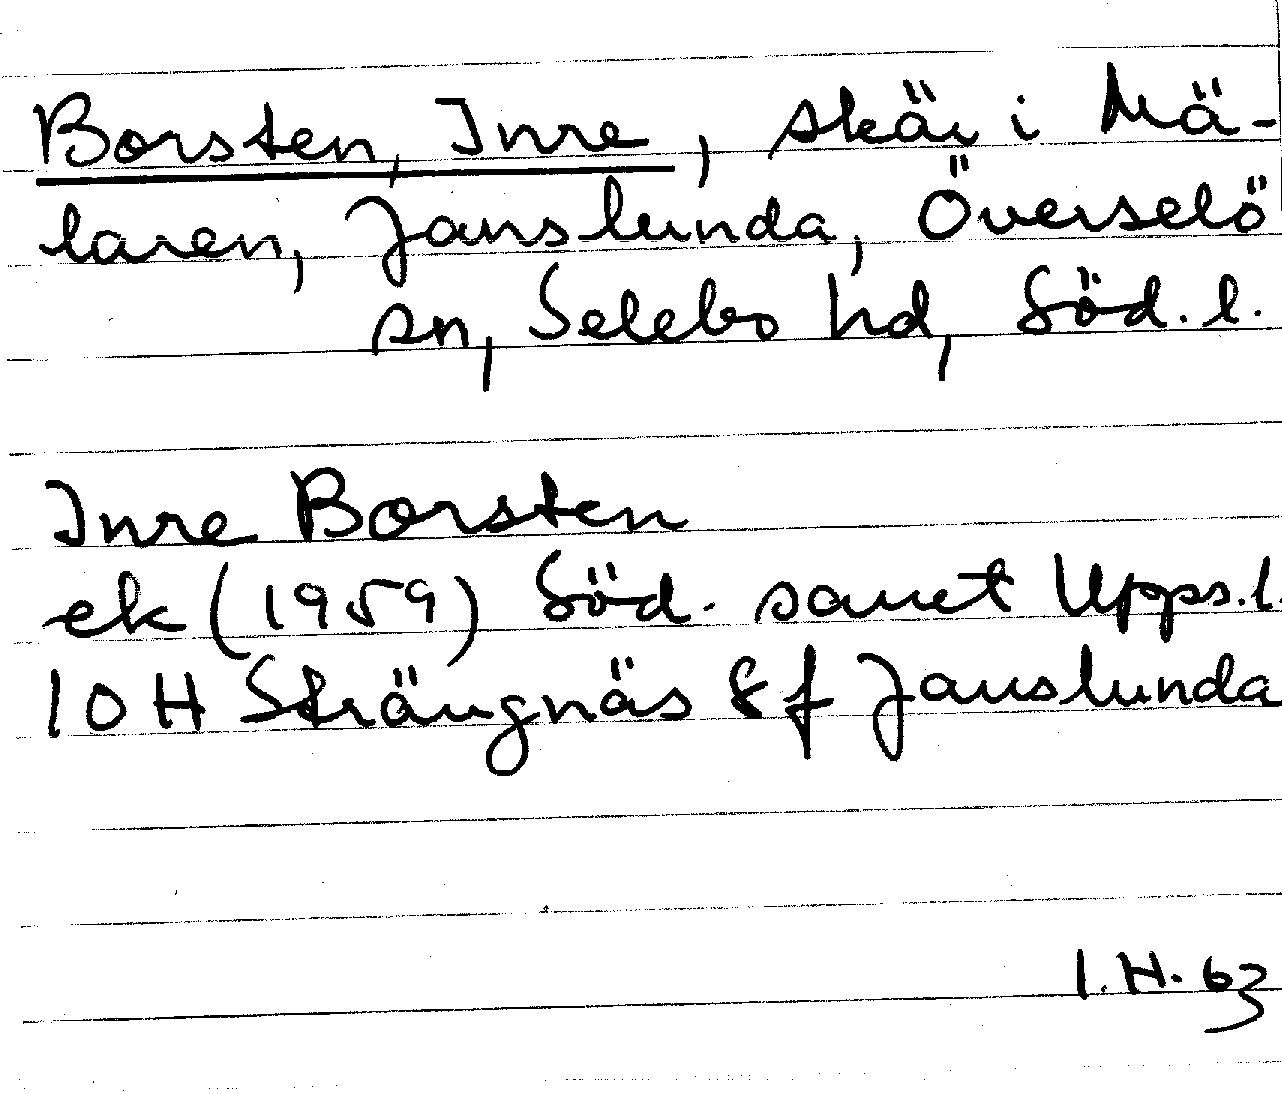 Borsten, Inre, skär i Mä-
laren, Janslunda, Överselö
sn, Selebo hd, Söd. l.
Inre Borsten
ek (1959) Söd. samt Upps. l.
10 H Strängnäs 8 f Janslunda
I. H. 63